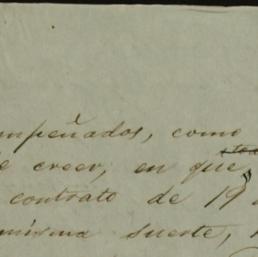 mpeñados, como
e creer, en que,
contrato de 19
misma suerte,